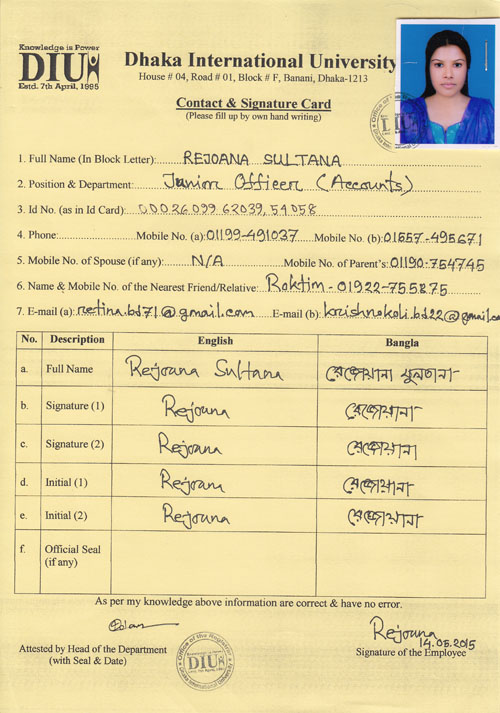 Knowledge is Power
DIU
Estd. 7th April, 1995
Dhaka International University
House # 04, Road # 01, Block # F, Banani, Dhaka-1213
Contact & Signature Card
(Please fill up by own hand writing)
1. Full Name (In Block Letter): REJOANA SULTANA
2. Position & Department: Junior Officer (Accounts)
3. Id No. (as in Id Card): DDD26099 62039, 54058
4. Phone: Mobile No. (a): 01199-491037 Mobile No. (b): 01557-495671
5. Mobile No. of Spouse (if any): N/A Mobile No. of Parent's: 01190-754745
6. Name & Mobile No. of the Nearest Friend/Relative: Roktim - 01922-755875
7. E-mail (a): retina.bd71@gmail.com E-mail (b): krishnokoli.bd22@gmail.co
No. Description English Bangla
a. Full Name Rejoana Sultana রেজোয়ানা সুলতানা
b. Signature (1) Rejoana রেজোয়ানা
c. Signature (2) Rejoana রেজোয়ানা
d. Initial (1) Rejoana রেজোয়ানা
e. Initial (2) Rejoana রেজোয়ানা
f. Official Seal
(if any)
As per my knowledge above information are correct & have no error.
Rejoana
14.05.2015
Attested by Head of the Department
(with Seal & Date)
Signature of the Employee
Office of the Registrar
DIU